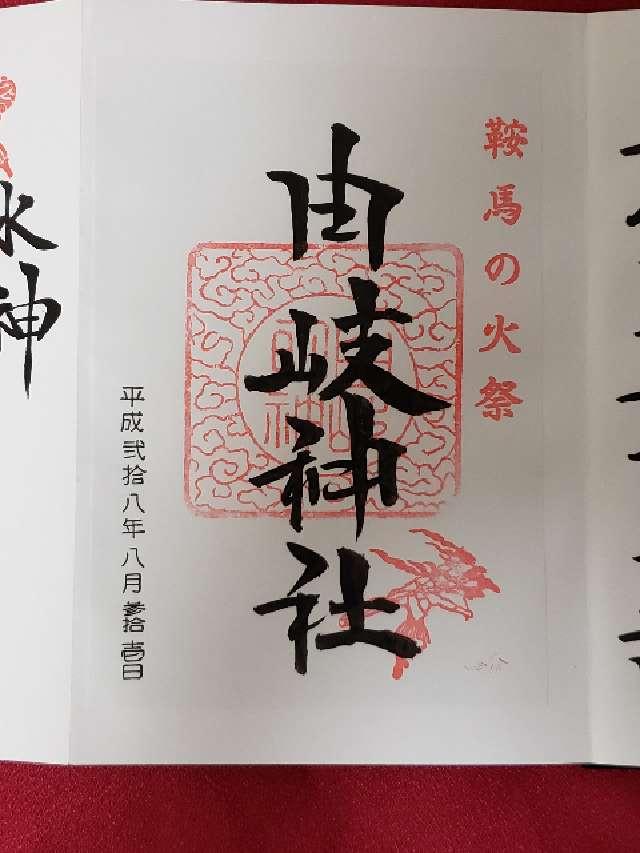 鞍馬の火祭
由岐神社
平成弐拾八年八月参拾壱日
水神